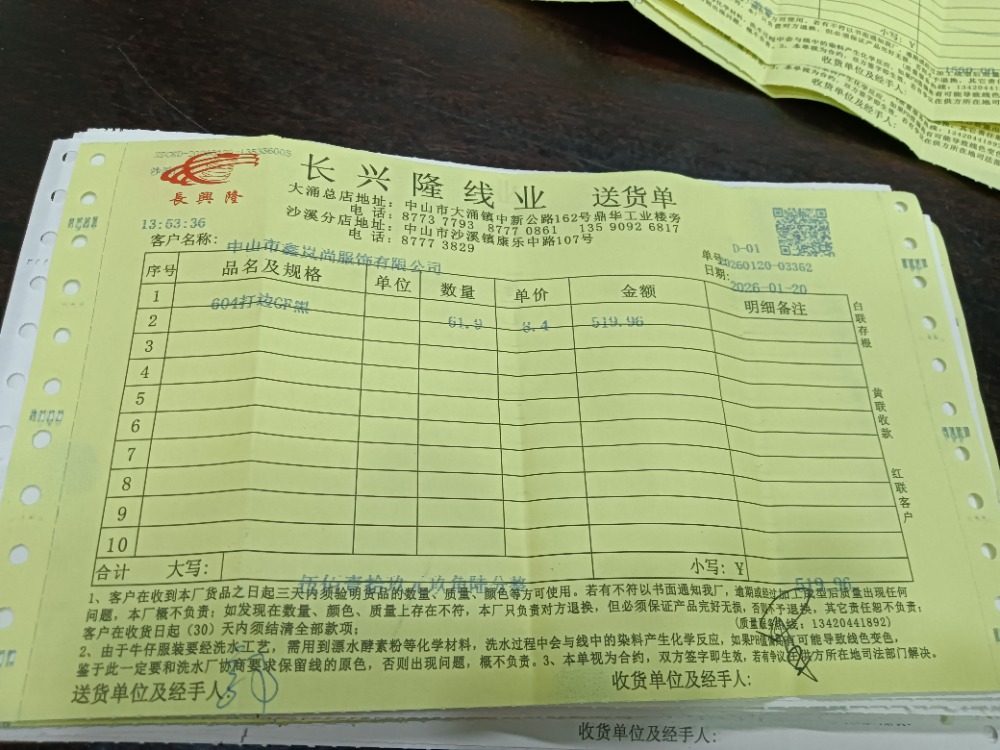 長興隆
长兴隆线业 送货单
大涌总店地址：中山市大涌镇中新公路162号鼎华工业楼旁
电 话：8773 7793 8777 0861 135 9092 6817
沙溪分店地址：中山市沙溪镇康乐中路107号
电 话：8777 3829
13:53:36
客户名称：中山市鑫岚尚服饰有限公司
D-01
单号：20260120-03362
日期：2026-01-20
序号 品名及规格 单位 数量 单价 金额 明细备注
1 604打边GF黑 61.9 8.4 519.96
2
3
4
5
6
7
8
9
10
白联存根
黄联收款
红联客户
合计 大写：伍佰壹拾玖元玖角陆分整 小写：Y 519.96
1、客户在收到本厂货品之日起三天内须验明货品的数量、质量、颜色等方可使用。若有不符以书面通知我厂，逾期或经过加工成型后质量出现任何
问题，本厂概不负责；如发现在数量、颜色、质量上存在不符，本厂只负责对方退换，但必须保证产品完好无损，否则不予退换，其它责任恕不负责；
(质量服务热线：13420441892)
客户在收货日起（30）天内须结清全部款项；
2、由于牛仔服装要经洗水工艺，需用到漂水酵素粉等化学材料，洗水过程中会与线中的染料产生化学反应，如果PH值偏高有可能导致线色变色，
鉴于此一定要和洗水厂协商要求保留线的原色，否则出现问题，概不负责。3、本单视为合约，双方签字即生效，若有争议在供方所在地司法部门解决。
送货单位及经手人：
收货单位及经手人：
收货单位及经手人：